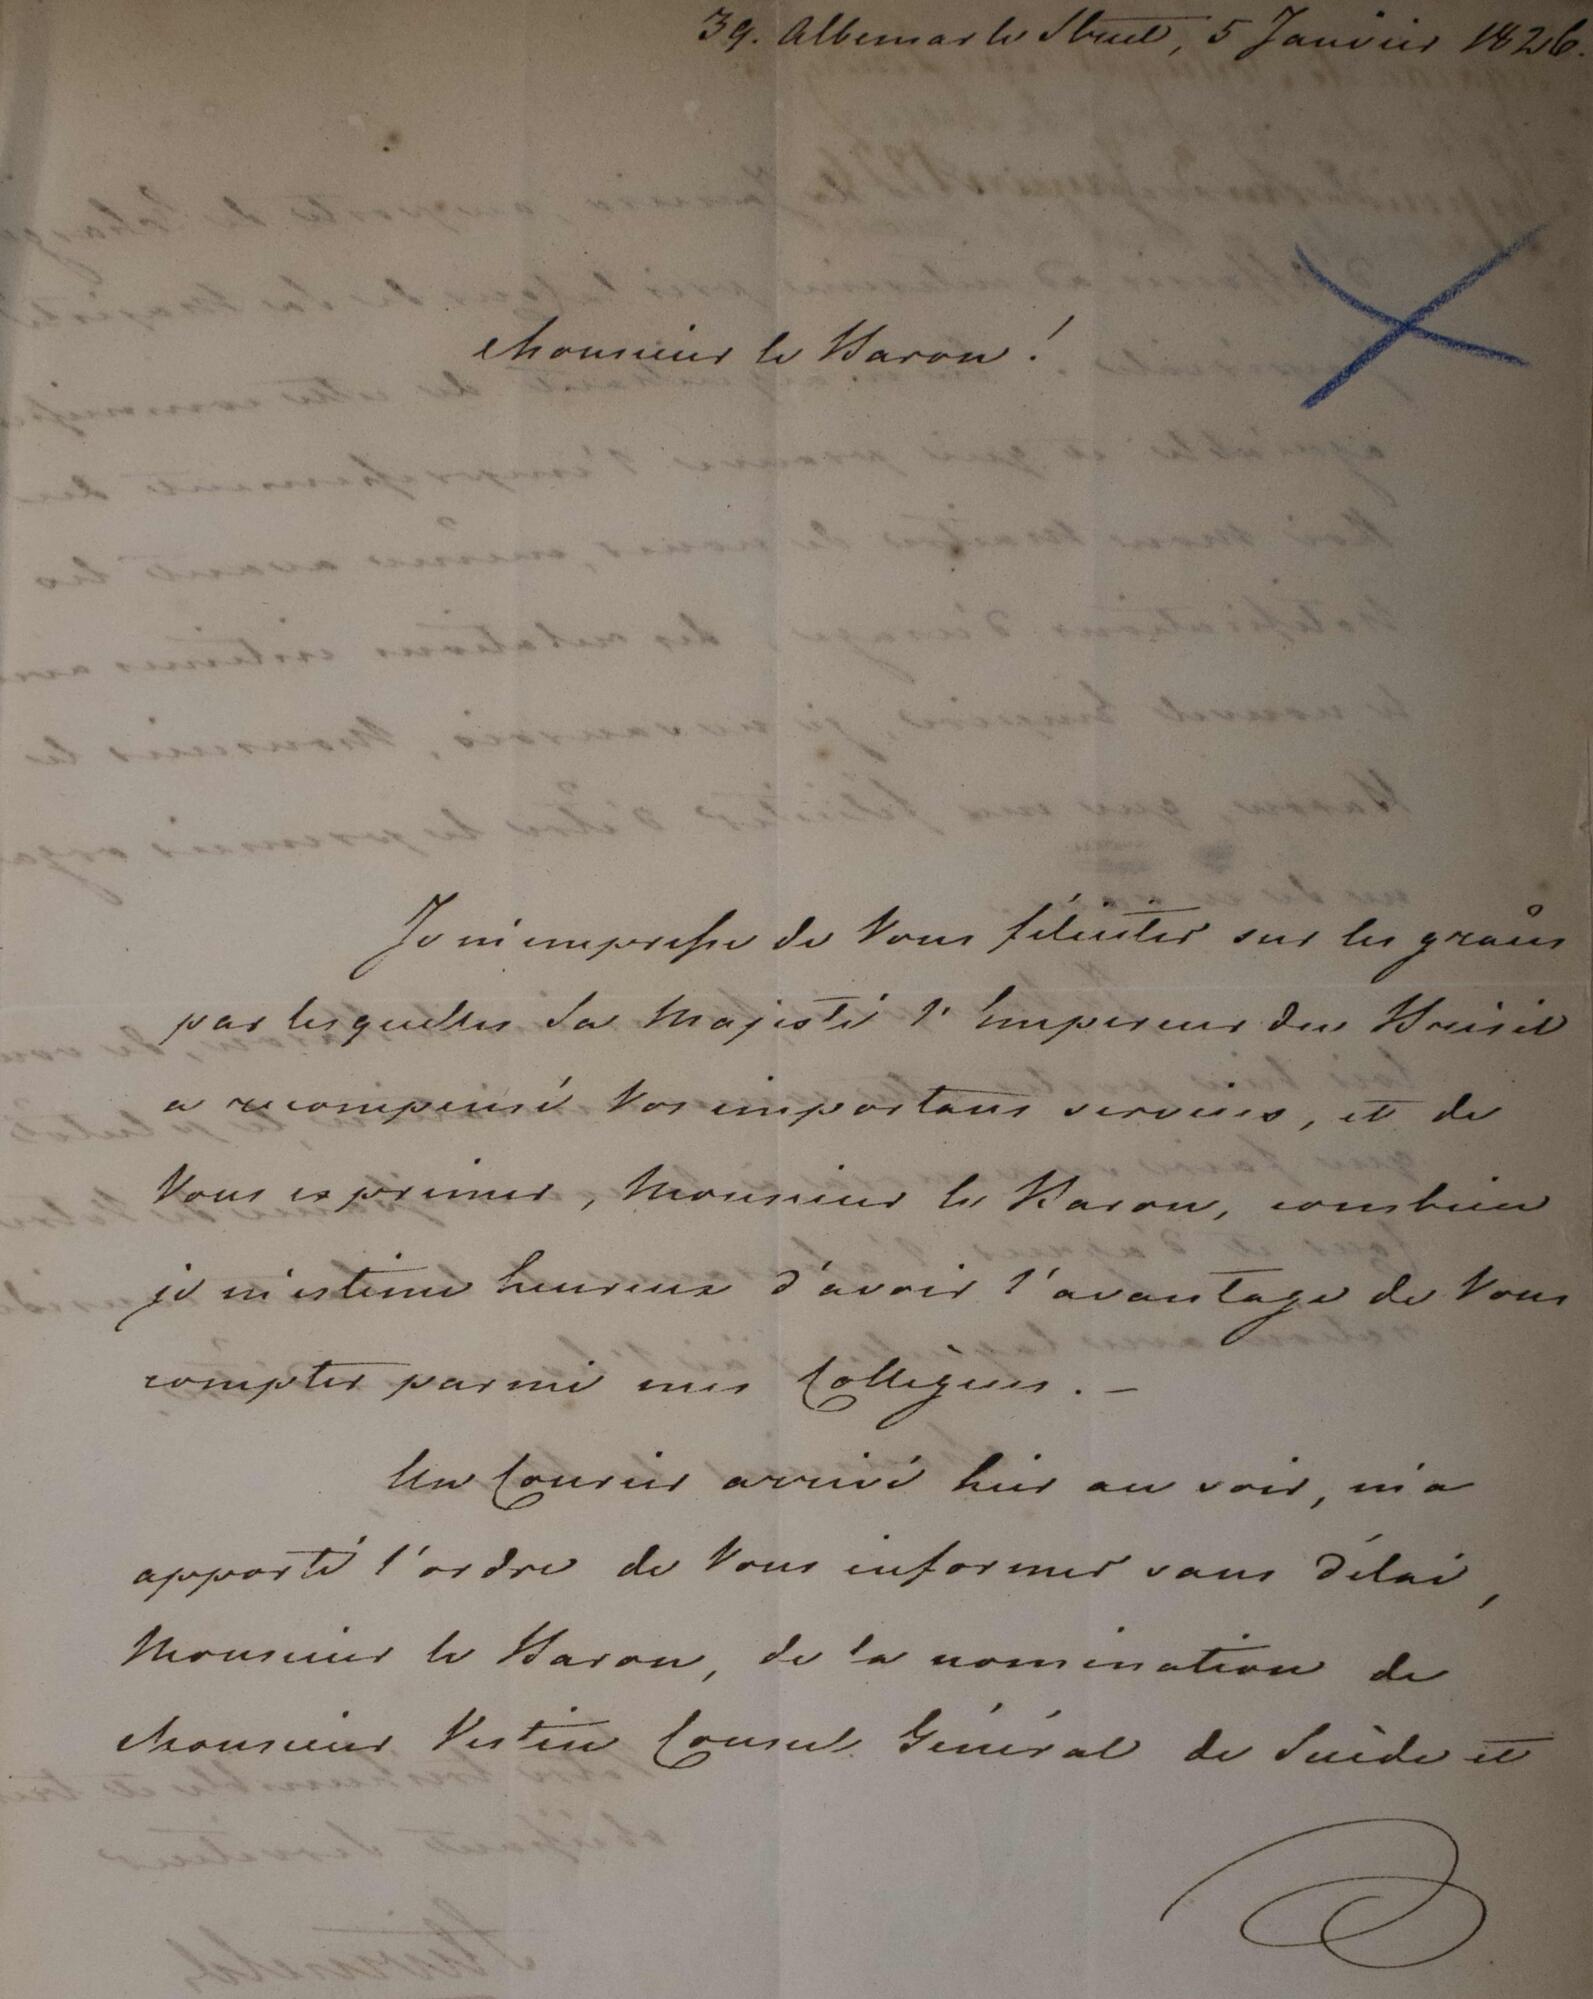 39. Albemarle Street, 5 Janvier 1826.
Monsieur le Baron!
Je m'empresse de Vous féliciter sur les grâces
par lesquelles Sa Majesté l'Empereur du Brésil
a recompensé Vos importans services, et de
Vous exprimer, Monsieur le Baron, combien
je m'estime heureux d'avoir l'avantage de Vous
compter parmi mes Collègues. —
Un Courier arrivé hier au soir, m'a
apporté l'ordre de Vous informer sans délai,
Monsieur le Baron, de la nomination de
Monsieur Vestin Consul Général de Suède et